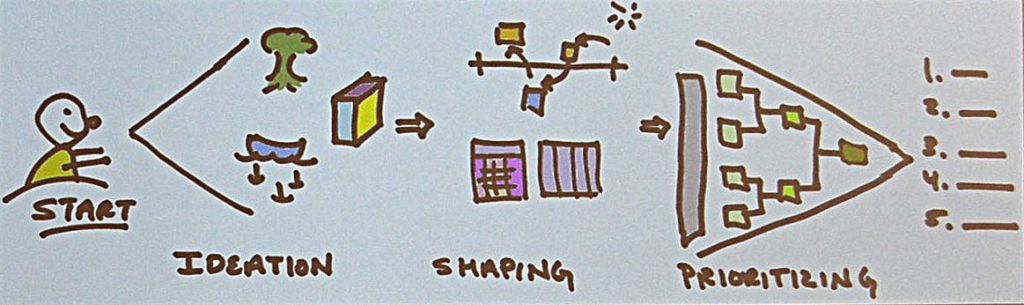 START
IDEATION
SHAPING
PRIORITIZING
1.
2.
3.
4.
5.